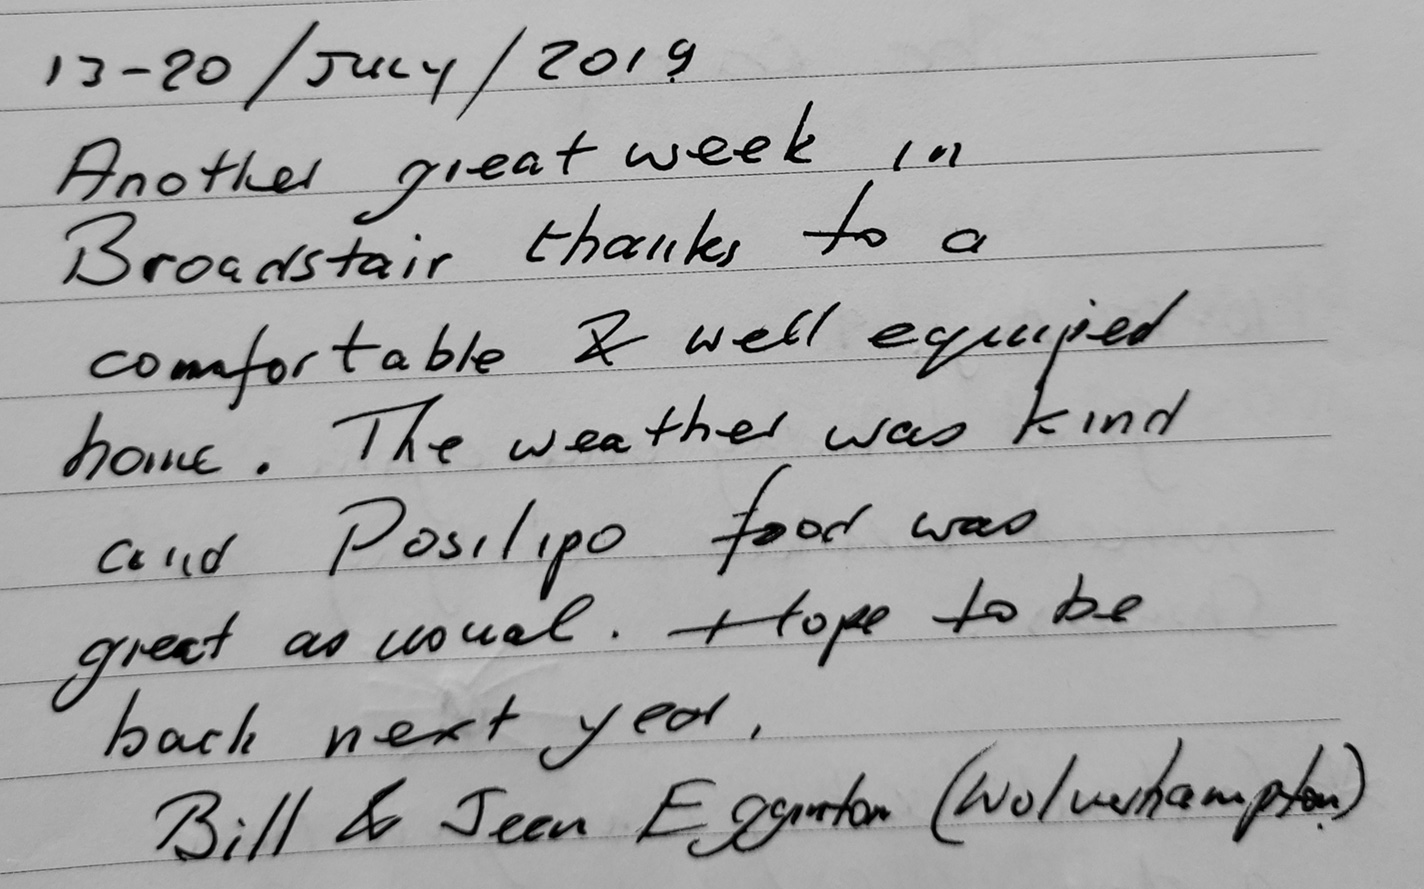 13-20/July/2019
Another great week in
Broadstair thanks to a
comfortable & well equiped
home. The weather was kind
and Posilipo food was
great as usual. Hope to be
back next year.
Bill & Jean Egginton (Wolverhampton)